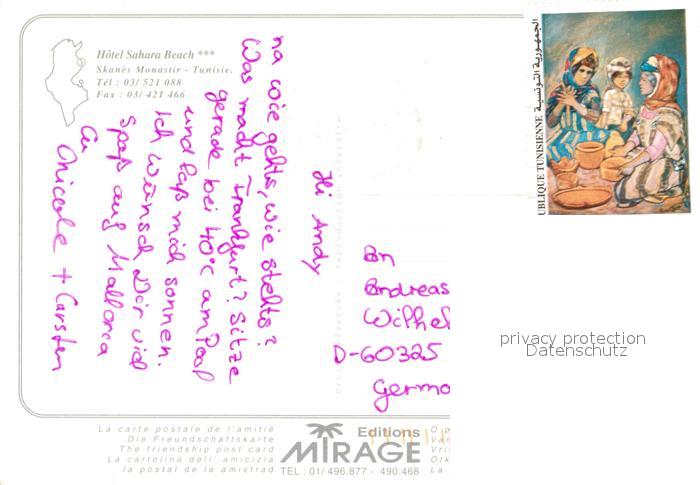 Hôtel Sahara Beach ***
Skanès Monastir - Tunisie.
Tél : 03/ 521 088
Fax : 03/ 421 466
Hi Andy
na wie gehts, wie stehts?
Was macht Frankfurt? Sitze
gerade bei 40°C am Pool
und laß mich sonnen.
Ich wünsch Dir viel
Spaß auf Mallorca
Nicole + Carsten
An
Andreas
Wilhel
D-60325
Germa
الجمهورية التونسية
UBLIQUE TUNISIENNE
privacy protection
Datenschutz
Reproduction interdite
La carte postale de l'amitié
Die Freundschaftskarte
The friendship post card
La cartolina dell' amicizia
la postal de la amistrad
Editions
MIRAGE
TEL : 01/ 496.877 - 490.468